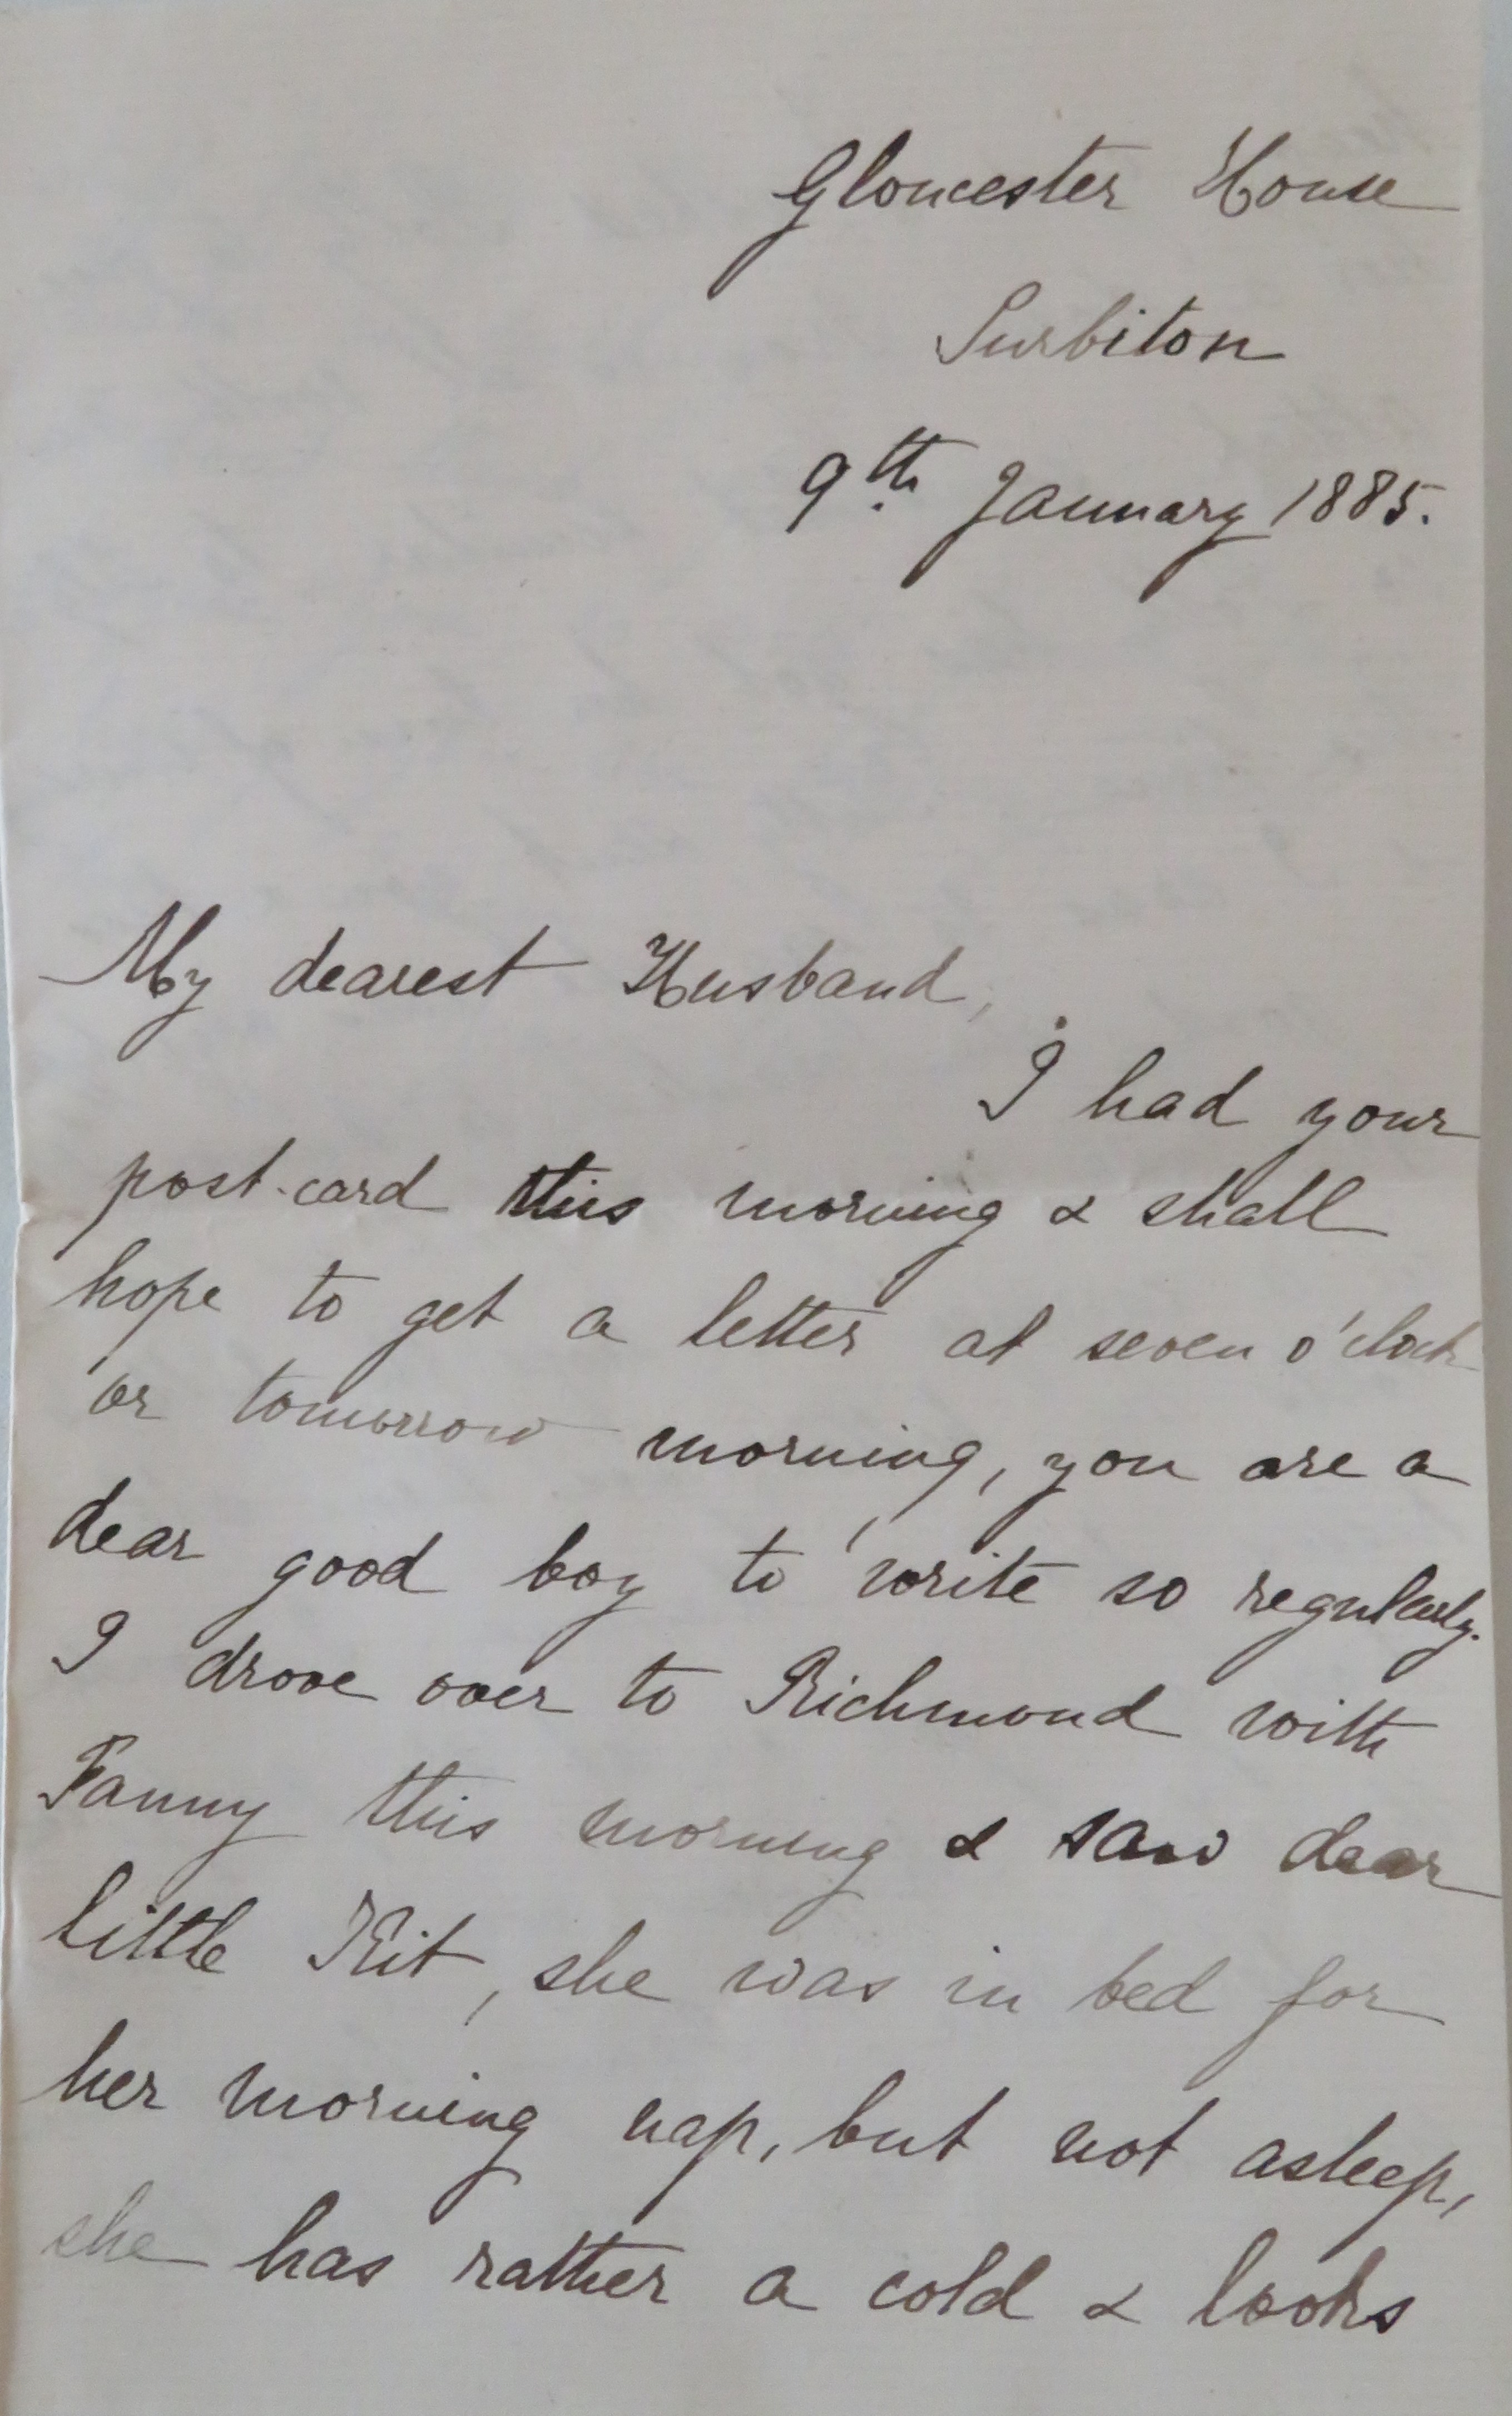 Gloucester House
Surbiton
9th January 1885.
My dearest Husband,
I had your
post-card this morning & shall
hope to get a letter at seven o'clock
or tomorrow morning, you are a
dear good boy to write so regularly.
I drove over to Richmond with
Fanny this morning & saw dear
little Kit, she was in bed for
her morning nap, but not asleep,
she has rather a cold & looks